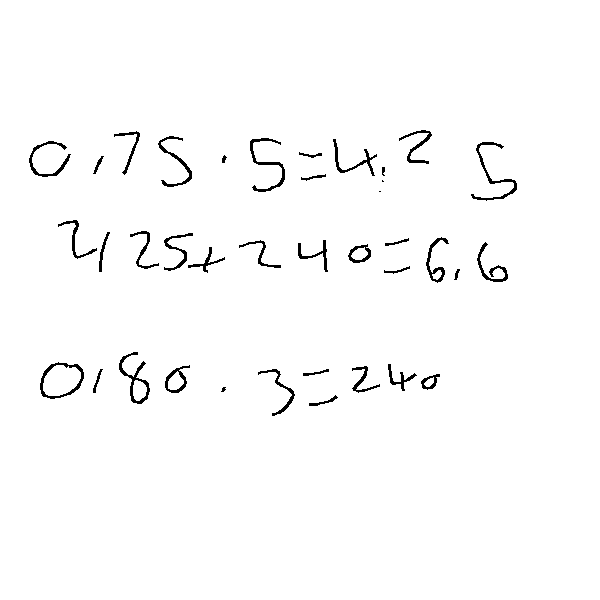 0,75 · 5 = 4,25
4,25 + 240 = 6,6
0,80 · 3 = 240